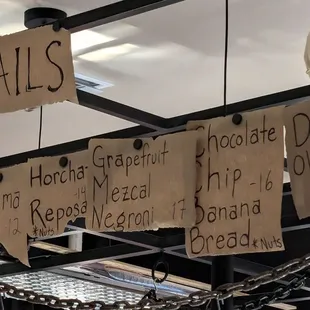 AILS
ma
12
Horcha
-14
Reposa
*Nuts
Grapefruit
Mezcal
Negroni 17
Chocolate
Chip -16
Banana
Bread *Nuts